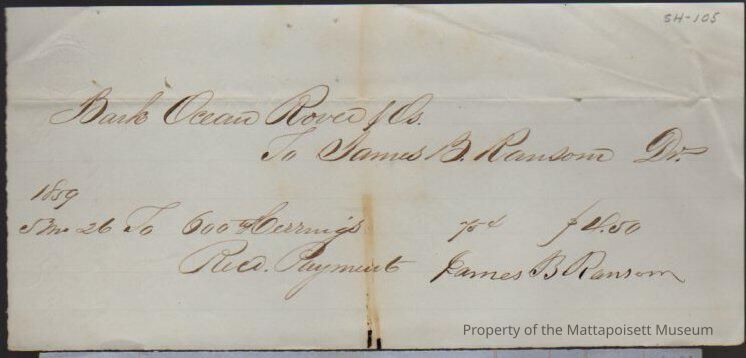 SH-105
Bark Ocean Rover & Os.
To James B. Ransom Dr.
1859
5 Mo 26 To 600 Herrings 75¢ $4.50
Recd. Payment James B Ransom
Property of the Mattapoisett Museum